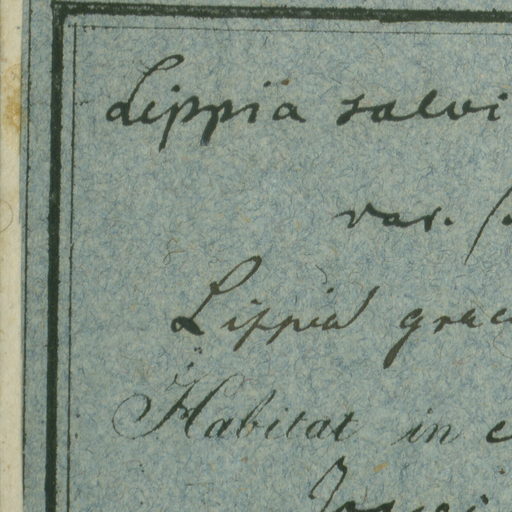 Lippia salvi
var. f.
Lippia grac
Habitat in c